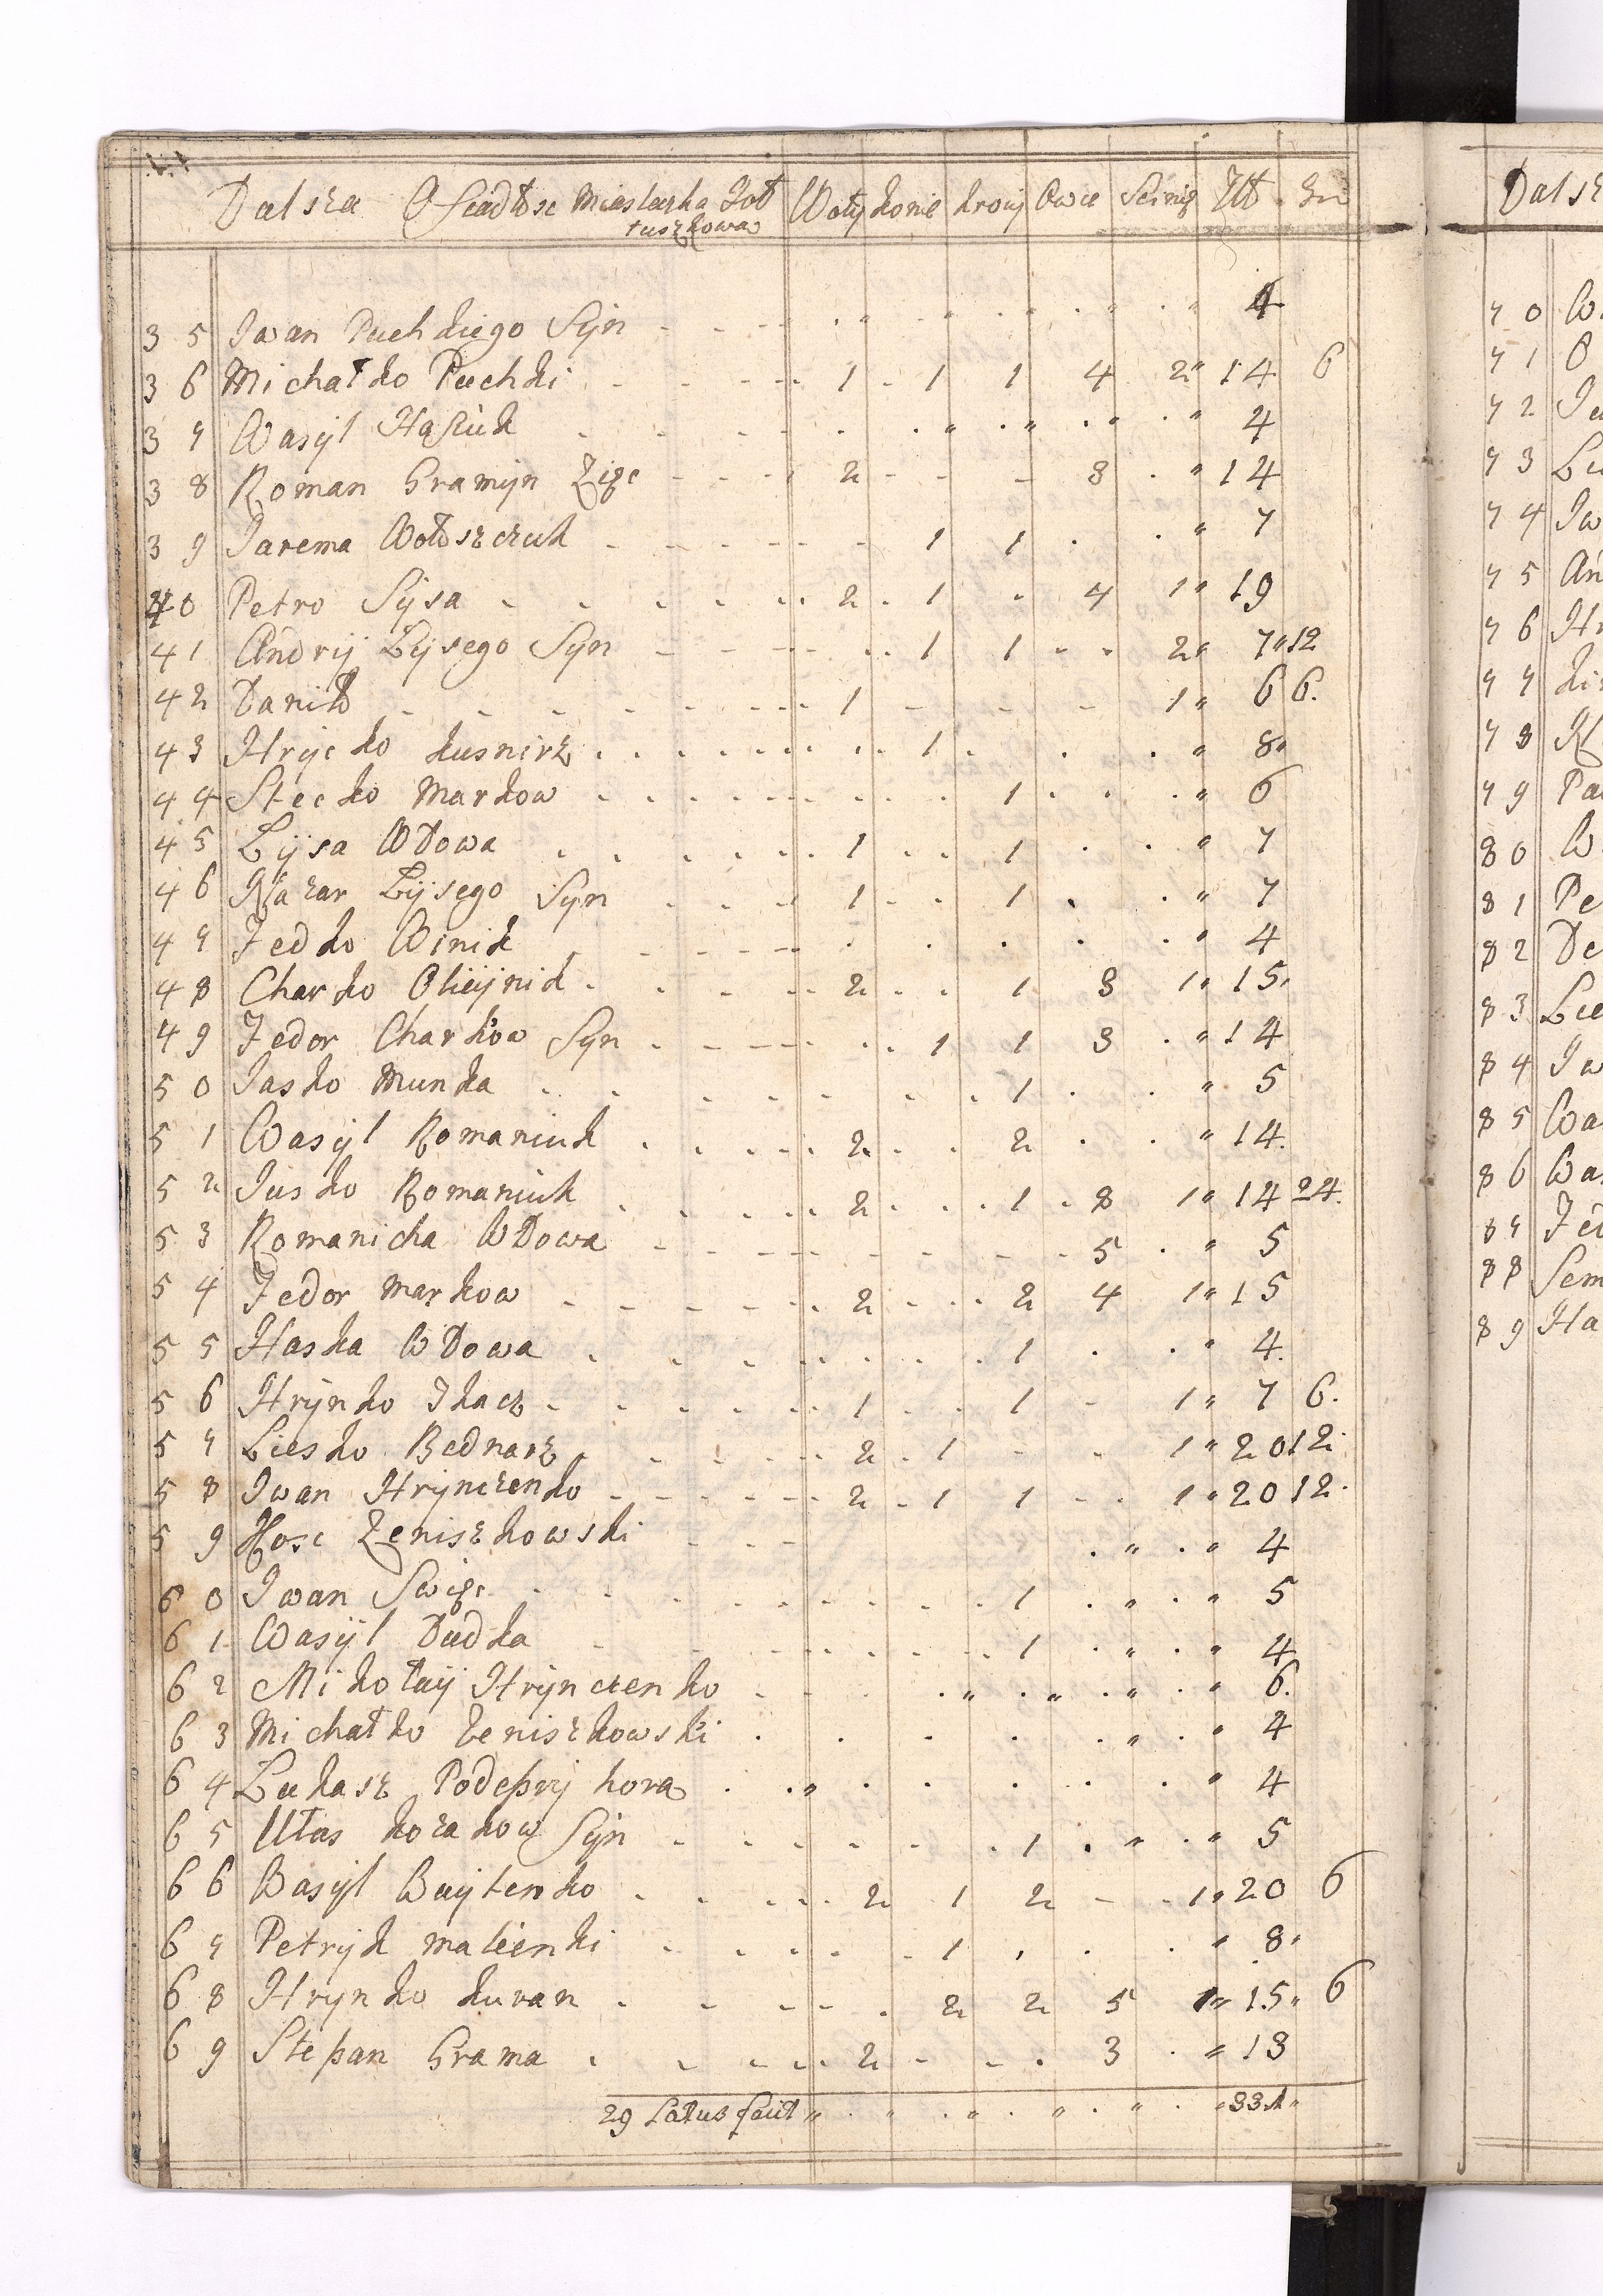 Dalsza Osiadłosc Miasteczka Joł
tuszkowa Woły konie krowy Owce Swinie Złł gr
35 Iwan Puchkiego Syn 4
36 Michałko Puchki 1 1 1 4 2 14 6
37 Wasyl Hasiuk 4
38 Roman Gramyn Zięc 2 3 14
39 Jarema Wołoszczuk 1 1 7
40 Petro Łysa 2 1 4 1 19
41 Andryj Łysego Syn 1 1 2 7 12
42 Daniło 1 1 6 6.
43 Hrycko kusnirz 1 8
44 Stecko Markow 1 6
45 Łysa Wdowa 1 1 7
46 Nazar Łysego Syn 1 1 7
47 Fedko Winik 4
48 Charko Oliynik 2 1 3 1 15
49 Fedor Charkow Syn 1 1 3 14
50 Jasko Munka 1 5
51 Wasyl Romaniuk 2 2 14.
52 Jusko Romaniuk 2 1 8 1 14 24.
53 Romanicha Wdowa 5 5
54 Fedor Markow 2 2 4 1 15
55 Haska Wdowa 1 4.
56 Hrynko Tkacz 1 1 1 7 6.
57 Liesko Bednarz 2 1 1 20 12
58 Iwan Hrynczenko 2 1 1 1 20 12.
59 Zeniszkowski 4
60 Iwan Swięc 1 5
61 Wasyl Dudka 1 4
62 Mikołay Hrynczenko 6.
63 Michałko Zeniszkowski 4
64 Łukasz Podepryhora 4
65 Ułas kozakow Syn 1 5
66 Wasyl Buytenko 2 1 2 1 20 6
67 Petryk malienki 1 8
68 Hrynko kuran 2 2 5 1 15 6
69 Stepan Grama 2 3 13
29 Latus facit 331
Dalsz
70 W
71 O
72 Ju
73 Lu
74 Iw
75 An
76 Hr
77 kir
78
79 Pa
80 W
81 Pe
82 De
83 Lu
84 Iw
85 Wa
86 Was
87 Fed
88 Sem
89 Ha